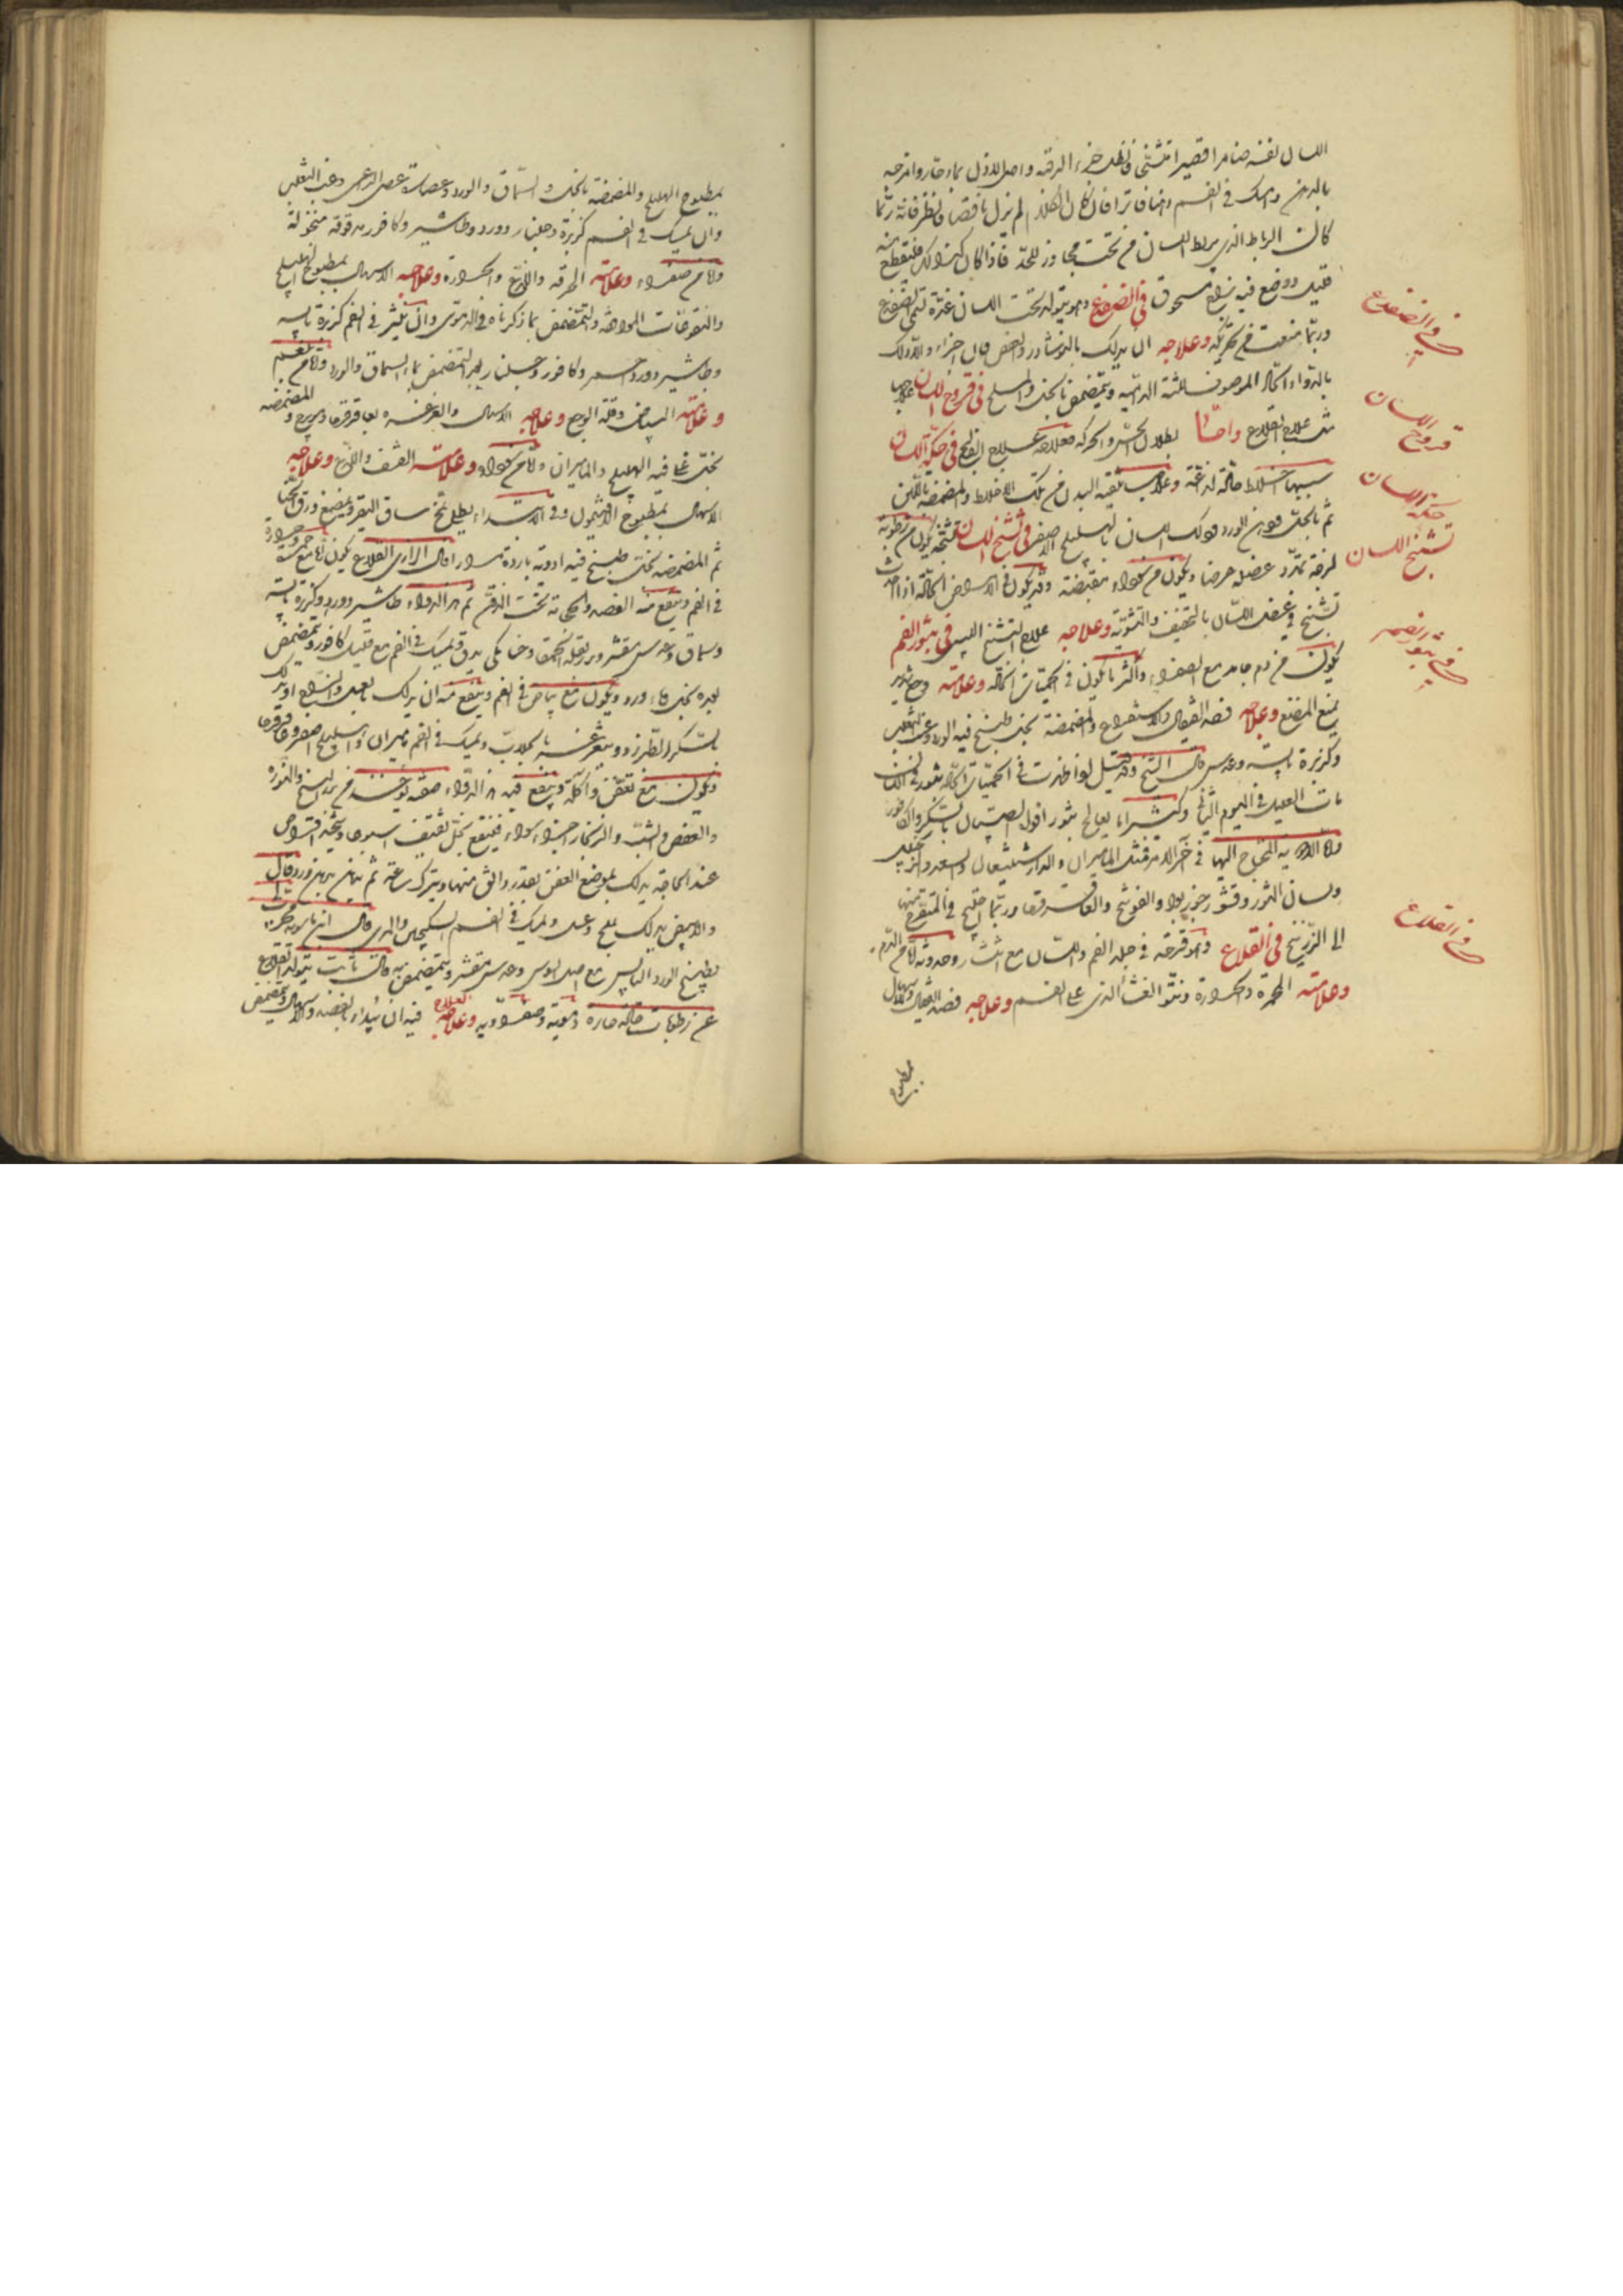 اللسان نفسه ضامرا قصيرا متشنجا فنطل خرز الرقبة واصل الاذن بماء حار وامرخه
بالدهن وامسك في الفم دهنا فاترا فان كان الكلام لم يزل ناقصا فانظر فانه ربما
كان الرباط الذي يربط اللسان من تحت مجاوز للحد فاذا كان كذلك فليقطع منه
قليلا ووضع فيه زاج مسحوق في الضفدع وهو يتولد تحت اللسان غدة تسمى الضفدع
وربما منعت من تحريكه وعلاجه ان يدلك بالنوشادر والعفص
بالدواء الحاد الموصوف للثة الدامية ويتمضمض بالخل والملح في قروح اللسان علاجها
مثل علاج القلاع واما بطلان الحس والحركة فعلاجه علاج الفالج في حكة اللسان
سببها اخلاط حادة لذاعة وعلاجه تنقية البدن من تلك الاخلاط والمضمضة باللبن
ثم بالخل ودهن الورد ودلك اللسان بالهليلج الاصفر في تشنج اللسان تشنجه يكون من رطوبة
لزجة تمدد عضله عرضا ويكون من سوداء مقبضة وقد يكون في الامراض الحادة اذا حدث
تشنج في عضل اللسان بالتجفيف والتشوية وعلاجه علاج التشنج اليبسي في بثور الفم
يكون من دم حاد مع الصفراء واكثر ما يكون في الحميات الحادة وعلامته وجع شديد
يمنع المضغ وعلاجه فصد القيفال والاستفراغ والمضمضة بخل طبخ فيه الورد وعنب الثعلب
وكزبرة يابسة وعدس قال الشيخ وقد قيل لو ظهرت في الحميات الحادة بثور في اللسان
مات العليل في اليوم الثاني وكثيرا ما يعالج بثور افواه الصبيان بالسكر والكافور
واما الادوية المحتاج اليها في آخر الامر فمثل الماميران والدارشيشعان والسعد والزنجبيل
ولسان الثور وقشور جوز بوا والفوتنج والعاقرقرحا وربما احتيج في المتقرح منها
الى الزرنيخ في القلاع وهو قرحة في جلد الفم واللسان مع انتشار وحدوثه اما من الدم
وعلامته الحمرة والحرارة ونتو الغشاء الذي على الفم وعلاجه فصد القيفال والاسهال
بمطبوخ
في الضفدع
قروح اللسان
حكة اللسان
تشنج اللسان
في بثور الفم
في القلاع
بمطبوخ الهليلج والمضمضة بالخل والسماق والورد وعصارة عصى الراعي وعنب الثعلب
وان يمسك في الفم كزبرة وجلنار وورد وطباشير وكافور مدقوقة منخولة
واما من صفراء وعلامته الحرقة واللذع والحرارة وعلاجه الاسهال بمطبوخ الهليلج
والنقوعات الموافقة والتمضمض بما ذكرناه في الدموي وان ينثر في الفم كزبرة يابسة
وطباشير وورد احمر وكافور وجلنار بعد التمضمض بماء السماق والورد واما من بلغم
وعلامته البياض وقلة الوجع وعلاجه الاسهال والغرغرة بعاقرقرحا وميويزج والمضمضة
بخل غلي فيه الهليلج والماميران واما من سوداء وعلامته القشف واللذع وعلاجه
الاسهال بمطبوخ الافتيمون وفي الابتداء يطلى بمخ ساق البقر ويمضغ ورق الحنا
ثم المضمضة بخل طبخ فيه ادوية باردة قال الرازي القلاع يكون اما مع حمرة وحرارة
في الفم وينفع منه الفصد والحجامة تحت الذقن ثم هذا الدواء طباشير وورد وكزبرة يابسة
وسماق وعدس مقشر وبزر بقلة الحمقا يدق ويمسك في الفم مع قليل كافور ويتمضمض
بعده بخل وماء ورد ويكون مع بياض في الفم وينفع منه ان يدلك بالعسل والملح او يدلك
بالسكر الطبرزد ويتغرغر بالجلاب ويمسك في الفم ماميران والهليلج اصفر وعاقرقرحا
ويكون مع تعفن وآكلة وينفع فيه هذا الدواء صفته يؤخذ من الزرنيخ والنورة
والعفص والشب والزنجار اجزاء سواء فينقع بخل ثقيف اسبوعا ويتخذ اقراص
عند الحاجة يدلك بموضع العفن بقدر دانق منها ويترك ساعة ثم يتمضمض بدهن ورد وقال
والابيض يدلك بملح وعسل ويمسك في الفم السكنجبين والمري قال ابن ماسويه
يطبخ الورد اليابس مع اصل السوس وعدس مقشر ويتمضمض به قال ثابت يتولد القلاع
عن رطوبات حادة حارة دموية وصفراوية وعلاجه العلاج فيه ان يبداء بالفصد والاسهال ويتمضمض